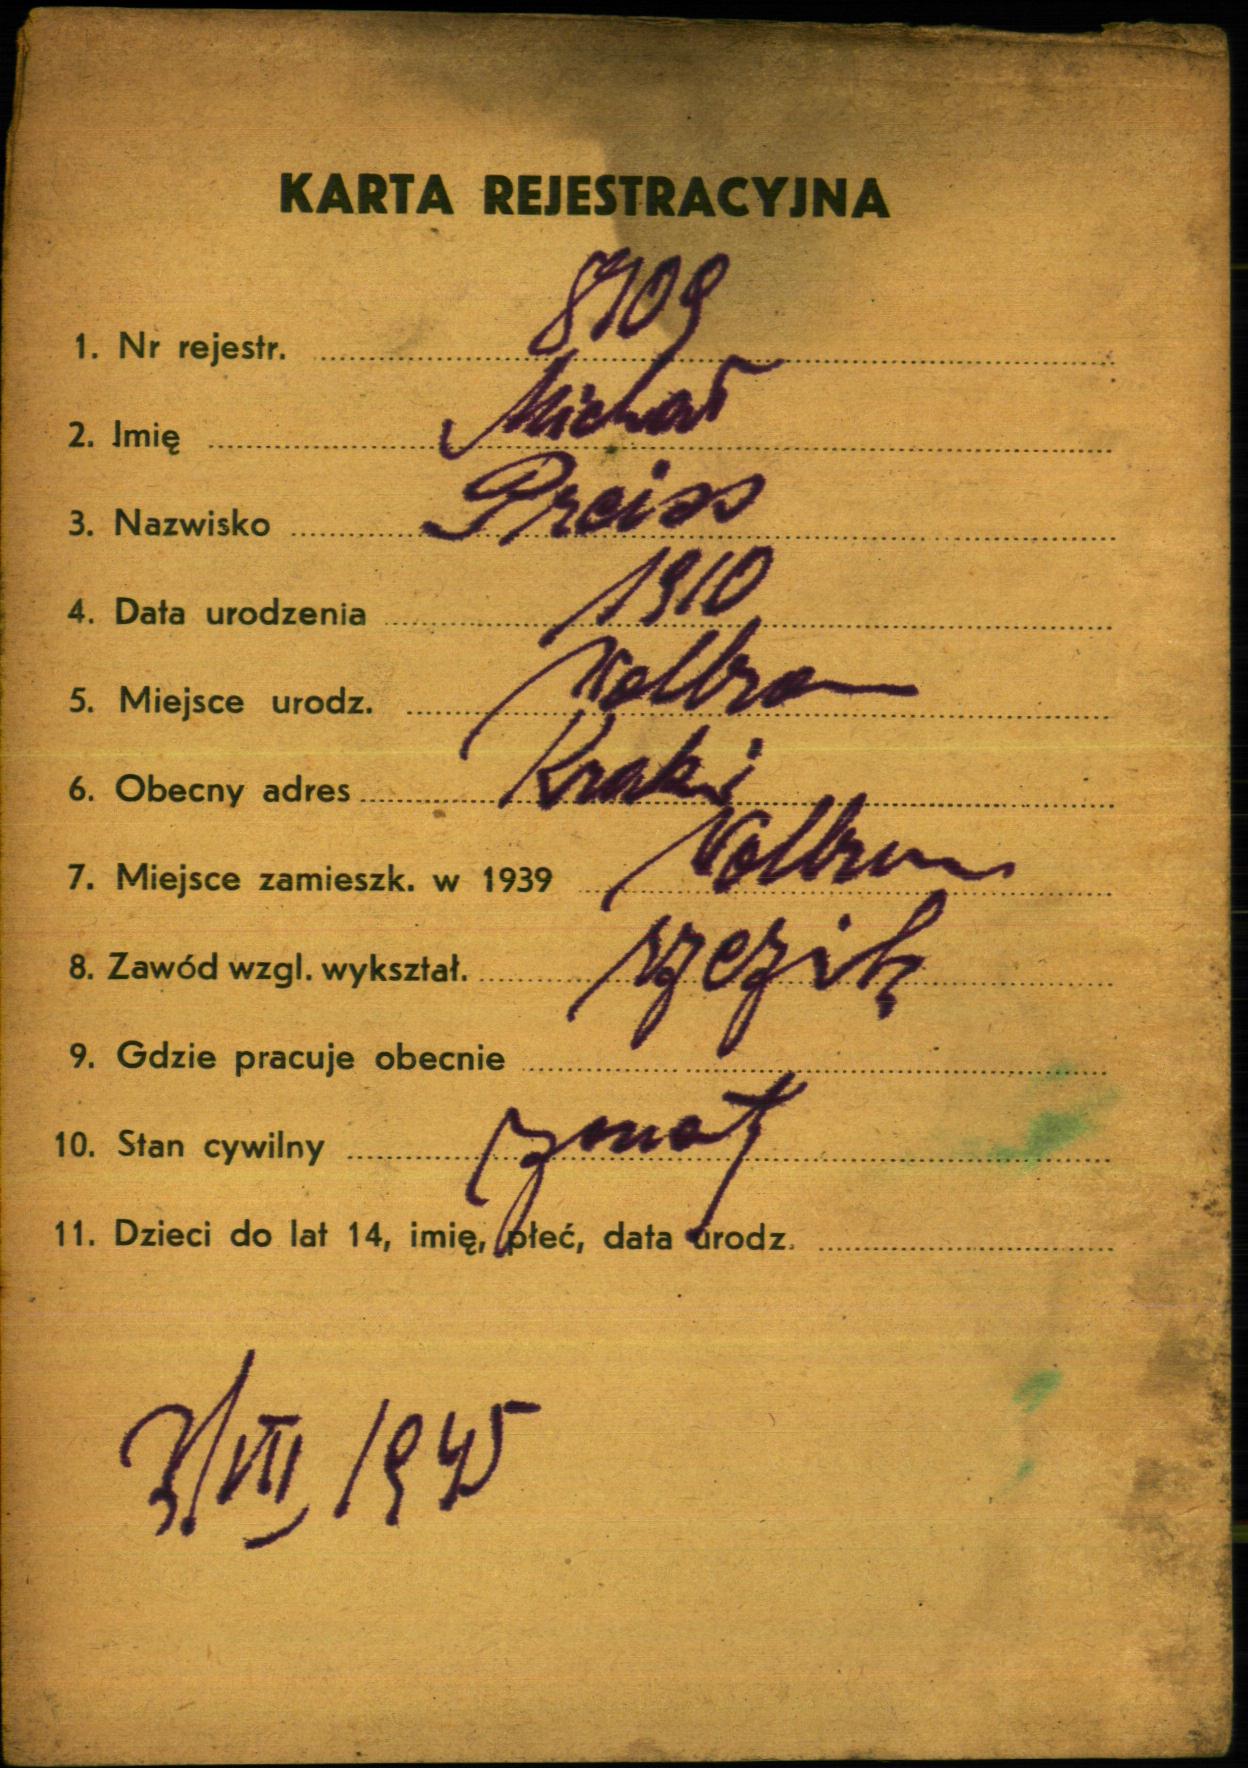 KARTA REJESTRACYJNA
1. Nr rejestr. 8109
2. Imię Michał
3. Nazwisko Preiss
4. Data urodzenia 1910
5. Miejsce urodz.
6. Obecny adres
7. Miejsce zamieszk. w 1939
8. Zawód wzgl. wykształ.
9. Gdzie pracuje obecnie
10. Stan cywilny żonaty
11. Dzieci do lat 14, imię, płeć, data urodz.
VII 1945